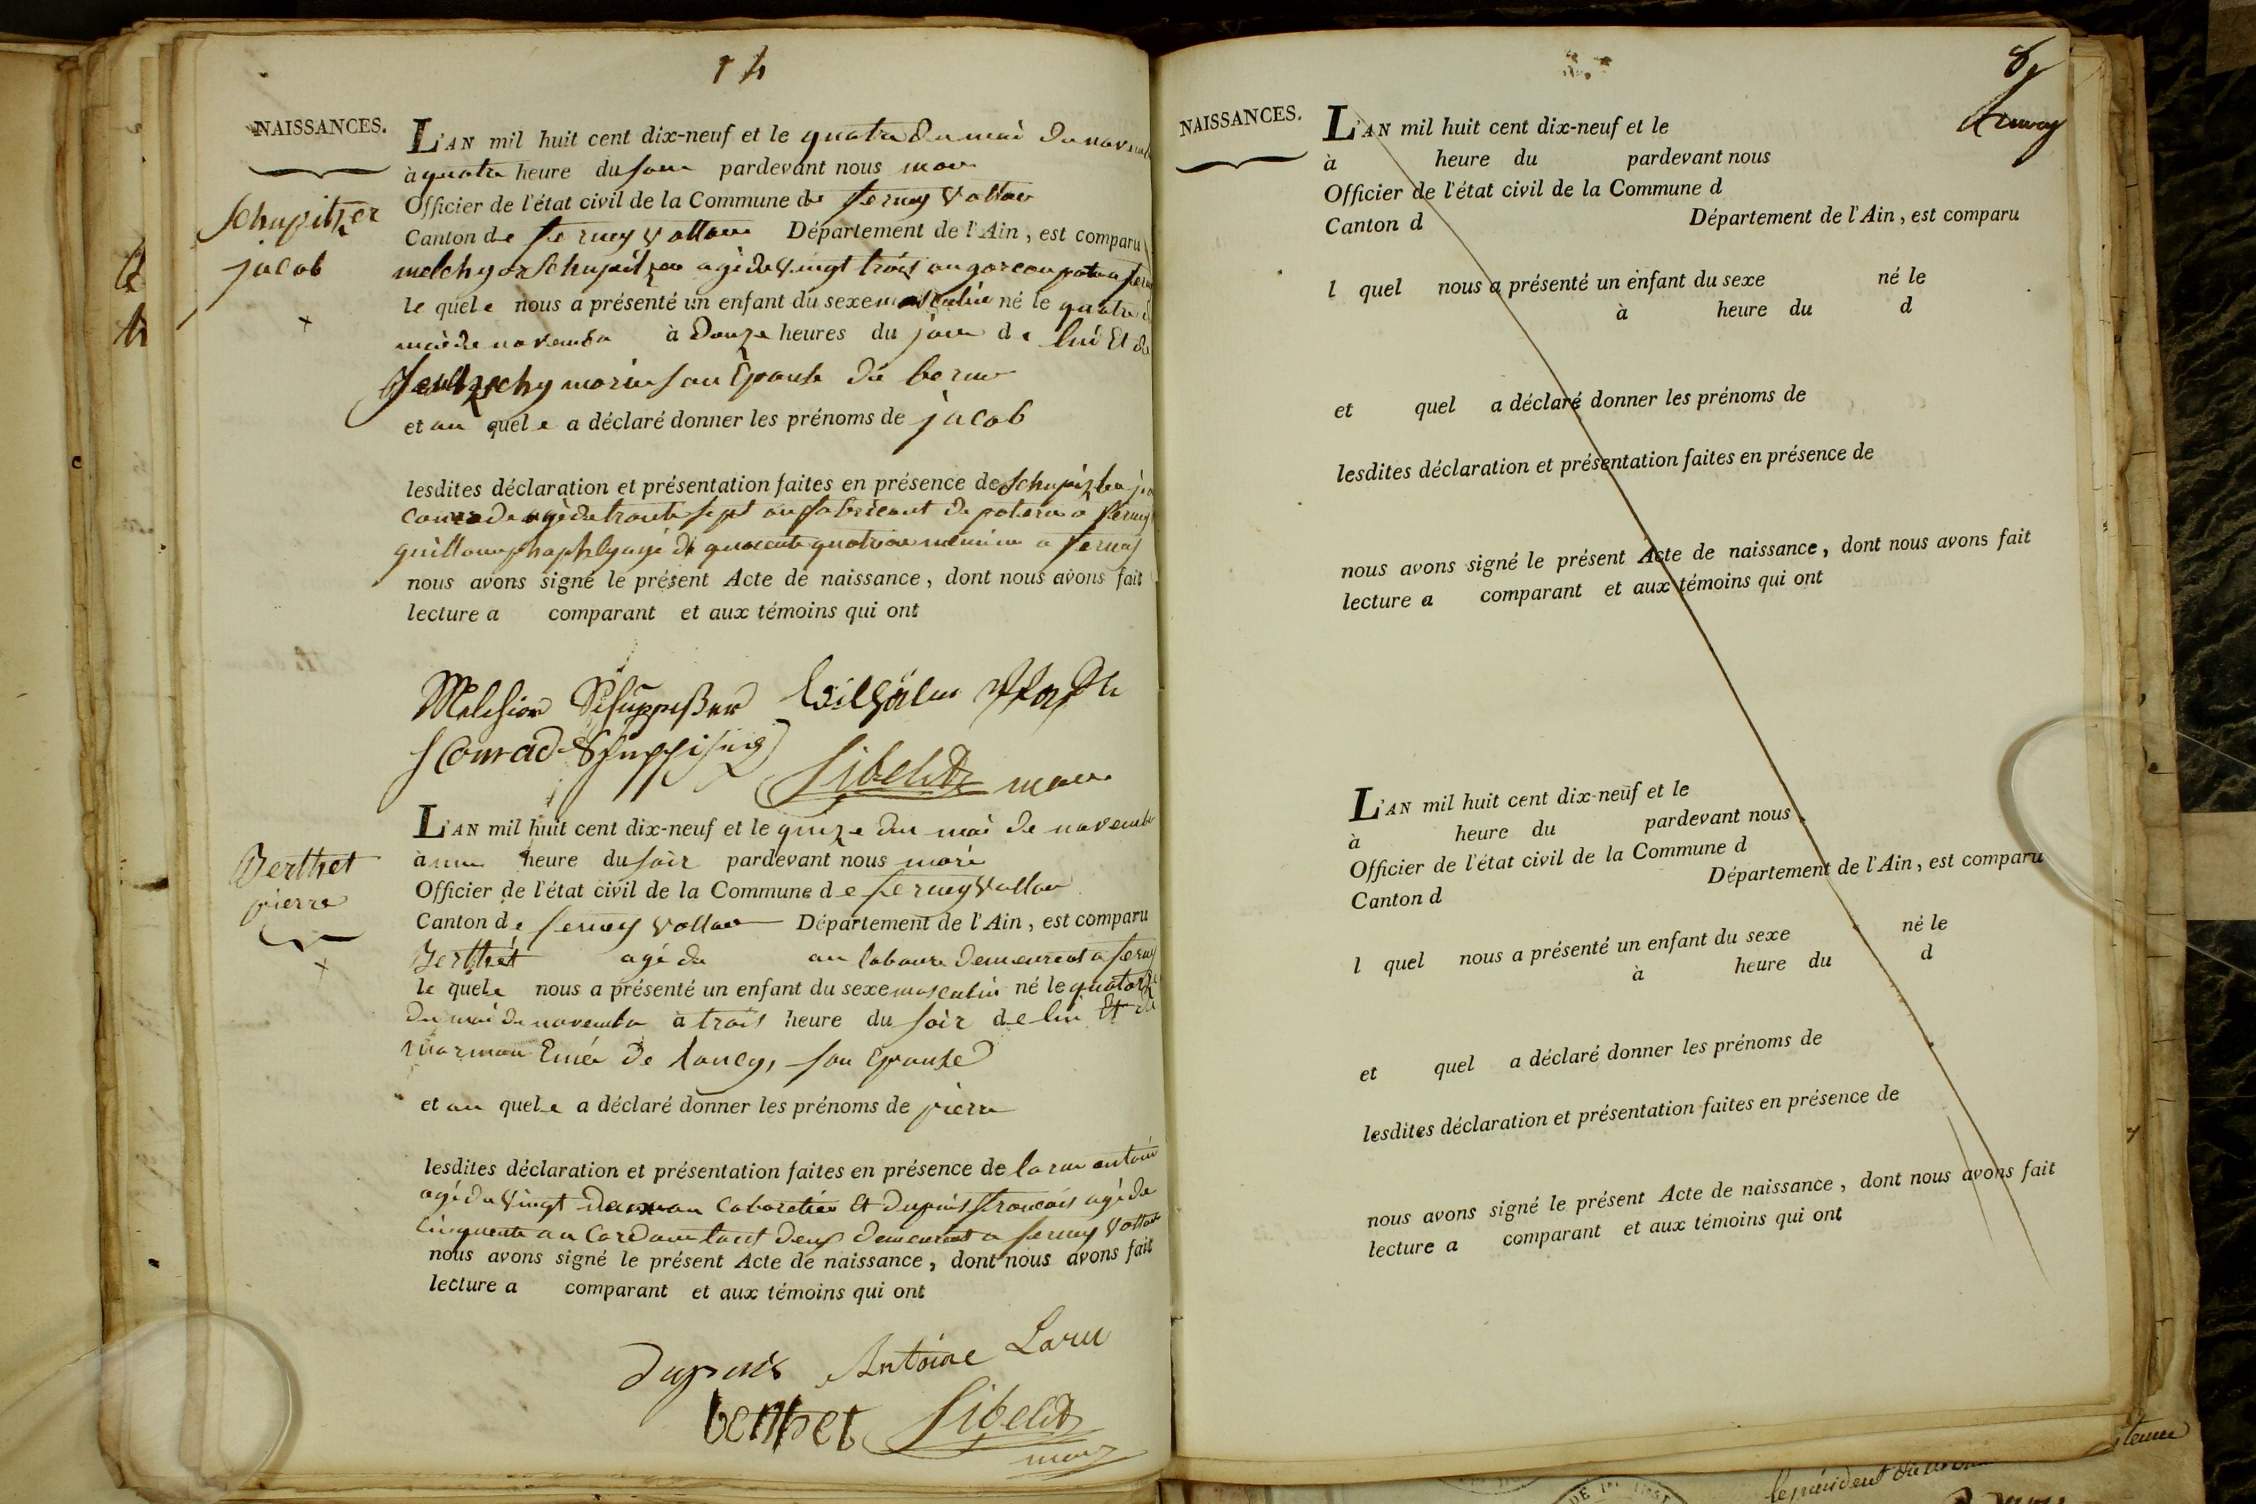 14
NAISSANCES.
L'AN mil huit cent dix-neuf et le quatre du moi de novemb
à quatre heure du soir pardevant nous maire
Officier de l'état civil de la Commune de ferney Voltair
Canton de ferney voltaire Département de l'Ain, est comparu
Schupitzer
jacob
melchyor Schupitzer agé de vingt trois an garcon potier a fern
le quele nous a présenté un enfant du sexe masculin né le quatre d
moi de novembre à Douze heures du jour de lui Et de
marie son Epouse de berne
et au quele a déclaré donner les prénoms de jacob
lesdites déclaration et présentation faites en présence de
Conrade agé de trente sept an fabricant de poterie a ferney
guillaume agé de quarente quatre an a ferney
nous avons signé le présent Acte de naissance, dont nous avons fait
lecture a comparant et aux témoins qui ont
Melchior Schuppisser Wilhelm
Conrad Schuppisser
maire
L'AN mil huit cent dix-neuf et le quinze du moi de novembr
à une heure du soir pardevant nous maire
Officier de l'état civil de la Commune de ferney Voltair
Canton de ferney voltair Département de l'Ain, est comparu
Berthet
pierre
Berthet agé de an laboure demeurent a ferney
le quele nous a présenté un enfant du sexe masculin né le quatorze
du moi de novembre à trois heure du soir de lui Et de
de lancy, son Epouse
et au quele a déclaré donner les prénoms de pierre
lesdites déclaration et présentation faites en présence de larue antoine
agé de vingt an cabaretier Et dupuis francois agé de
cinquente an tout deux demeurent a ferney Voltair
nous avons signé le présent Acte de naissance, dont nous avons fait
lecture a comparant et aux témoins qui ont
dupuis Antoine Larue
berthet
maire
8
NAISSANCES.
L'AN mil huit cent dix-neuf et le
à heure du pardevant nous
Officier de l'état civil de la Commune d
Canton d Département de l'Ain, est comparu
l quel nous a présenté un enfant du sexe né le
à heure du d
et quel a déclaré donner les prénoms de
lesdites déclaration et présentation faites en présence de
nous avons signé le présent Acte de naissance, dont nous avons fait
lecture a comparant et aux témoins qui ont
L'AN mil huit cent dix-neuf et le
à heure du pardevant nous
Officier de l'état civil de la Commune d
Canton d Département de l'Ain, est comparu
l quel nous a présenté un enfant du sexe né le
à heure du d
et quel a déclaré donner les prénoms de
lesdites déclaration et présentation faites en présence de
nous avons signé le présent Acte de naissance, dont nous avons fait
lecture a comparant et aux témoins qui ont